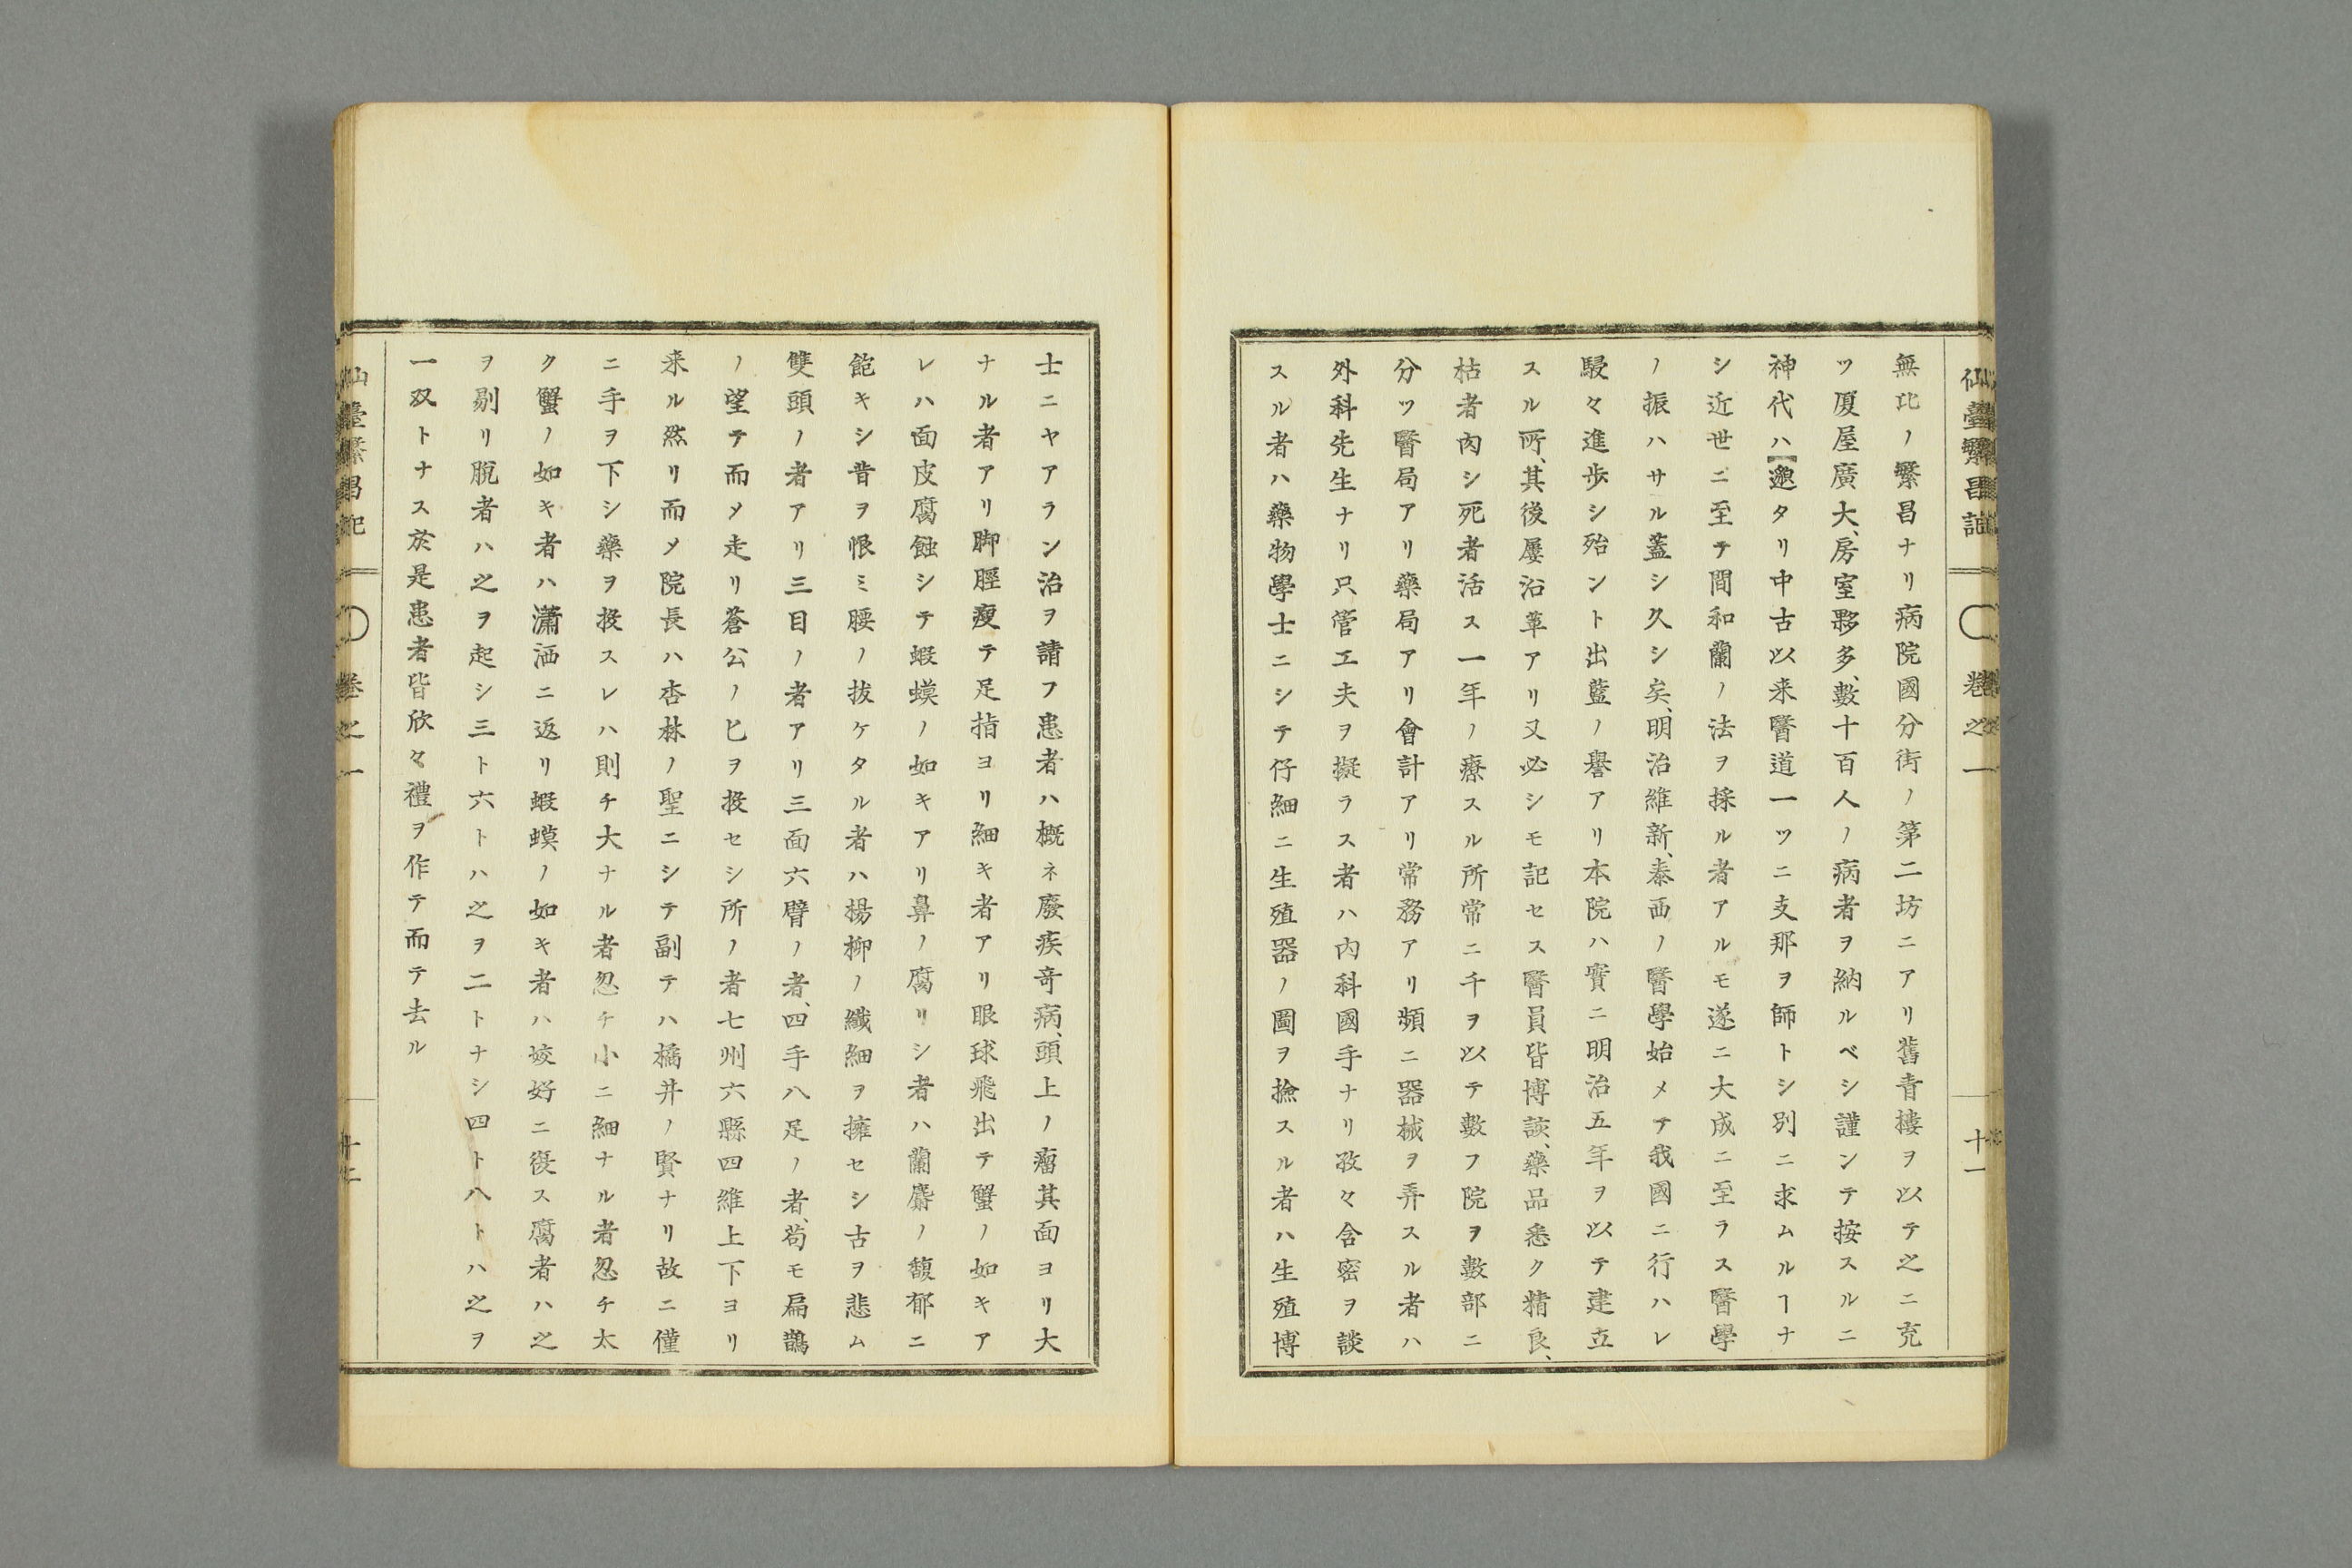 仙臺繁昌記 卷之一 十一
無比ノ繁昌ナリ病院國分街ノ第二坊ニアリ舊青樓ヲ以テ之ニ充
ツ厦屋廣大、房室夥多、數十百人ノ病者ヲ納ルベシ謹ンテ按スルニ
神代ハ邈タリ中古以来醫道一ツニ支那ヲ師トシ別ニ求ムルヿナ
シ近世ニ至テ間和蘭ノ法ヲ採ル者アルモ遂ニ大成ニ至ラス醫學
ノ振ハサル蓋シ久シ矣、明治維新、泰西ノ醫學始メテ我國ニ行ハレ
駸々進歩シ殆ント出藍ノ譽アリ本院ハ實ニ明治五年ヲ以テ建立
スル所、其後屢沿革アリ又必シモ記セス醫員皆博該、藥品悉ク精良、
枯者肉シ死者活ス一年ノ療スル所常ニ千ヲ以テ數フ院ヲ數部ニ
分ツ醫局アリ藥局アリ會計アリ常務アリ頻ニ器械ヲ弄スル者ハ
外科先生ナリ只管工夫ヲ擬ラス者ハ内科國手ナリ孜々含密ヲ談
スル者ハ藥物學士ニシテ仔細ニ生殖器ノ圖ヲ撿スル者ハ生殖博
士ニヤアラン治ヲ請フ患者ハ概ネ廢疾竒病、頭上ノ瘤其面ヨリ大
ナル者アリ脚脛瘦テ足指ヨリ細キ者アリ眼球飛出テ蟹ノ如キア
レハ面皮腐蝕シテ蝦蟆ノ如キアリ鼻ノ腐リシ者ハ蘭麝ノ馥郁ニ
飽キシ昔ヲ恨ミ腰ノ拔ケタル者ハ楊柳ノ纖細ヲ擁セシ古ヲ悲ム
雙頭ノ者アリ三目ノ者アリ三面六臂ノ者、四手八足ノ者、苟モ扁鵲
ノ望テ而メ走リ蒼公ノ匕ヲ投セシ所ノ者七州六縣四維上下ヨリ
来ル然リ而メ院長ハ杏林ノ聖ニシテ副テハ橘井ノ賢ナリ故ニ僅
ニ手ヲ下シ藥ヲ投スレハ則チ大ナル者忽チ小ニ細ナル者忽チ太
ク蟹ノ如キ者ハ瀟洒ニ返リ蝦蟆ノ如キ者ハ姣好ニ復ス腐者ハ之
ヲ剔リ脫者ハ之ヲ起シ三ト六トハ之ヲ二トナシ四ト八トハ之ヲ
一双トナス於是患者皆欣々禮ヲ作テ而テ去ル
仙臺繁昌記 卷之一